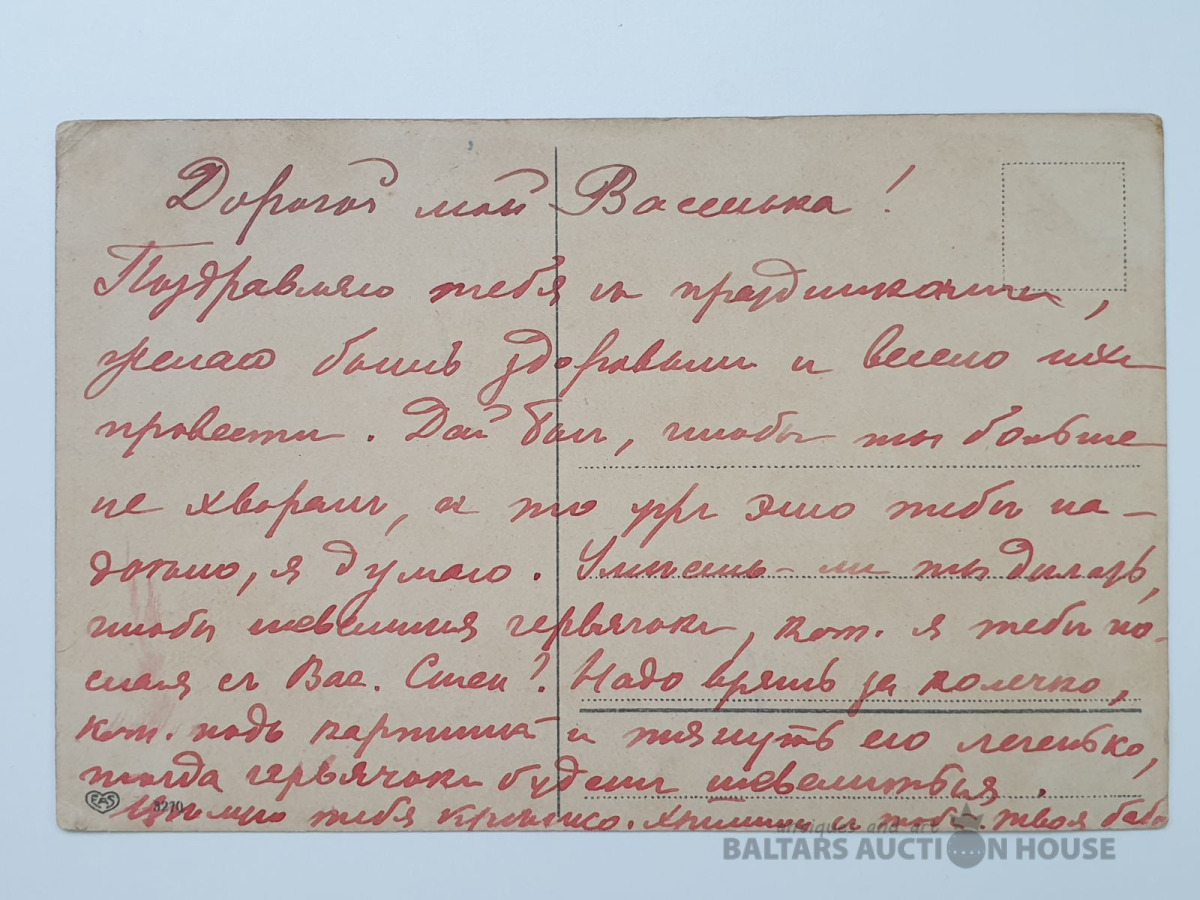 Дорогой мой Васенька!
Поздравляю тебя съ праздниками,
желаю быть здоровымъ и весело ихъ
провести. Дай Богъ, чтобы ты больше
не хворалъ, а то ужъ это тебѣ на-
доѣло, я думаю. Умѣешь-ли ты дѣлать,
чтобы шевелился червячокъ, кот. я тебѣ по-
слала съ Вас. Степ? Надо взять за колечко,
кот. подъ картиной и тянуть его легенько,
тогда червячокъ будетъ шевелиться.
Цѣлую тебя крѣпко. Твоя баба
EAS
5270
antiques and art
BALTARS AUCTION HOUSE